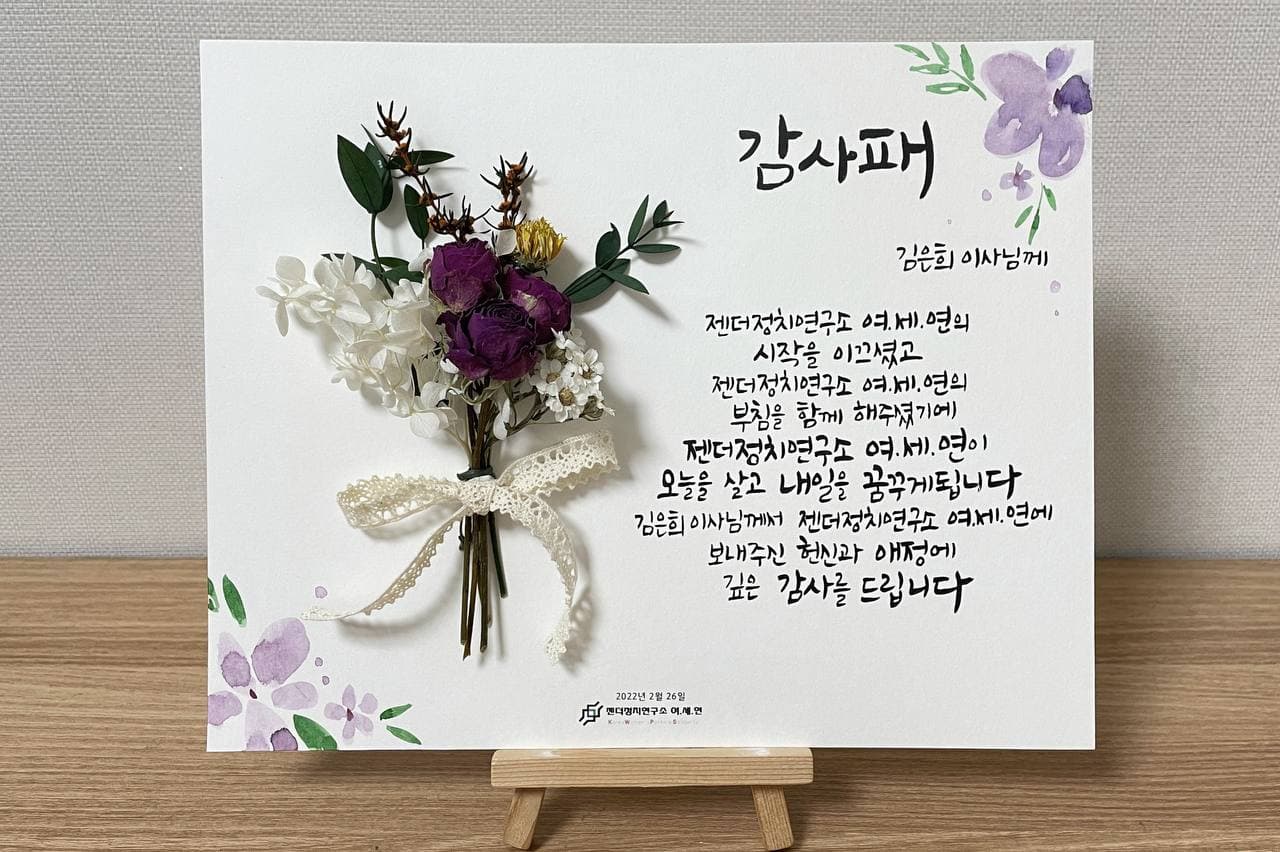 감사패
김은희 이사님께
젠더정치연구소 여.세.연의
시작을 이끄셨고
젠더정치연구소 여.세.연의
부침을 함께 해주셨기에
젠더정치연구소 여.세.연이
오늘을 살고 내일을 꿈꾸게됩니다
김은희 이사님께서 젠더정치연구소 여.세.연에
보내주신 헌신과 애정에
깊은 감사를 드립니다
2022년 2월 26일
젠더정치연구소 여.세.연